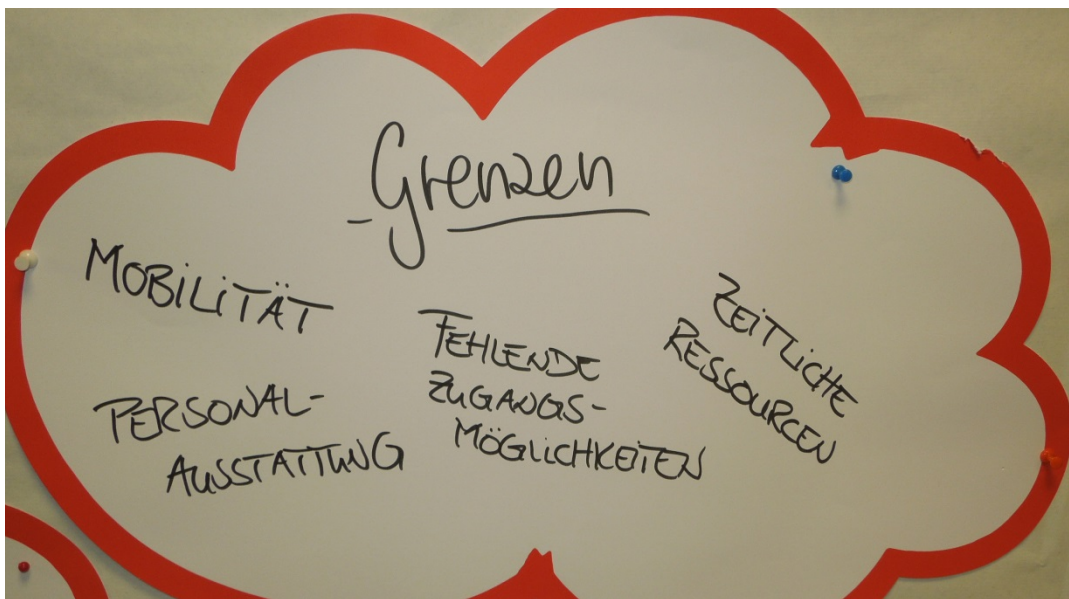 Grenzen
MOBiLiTÄT
PERSONAL-
AUSSTATTUNG
FEHLENDE
ZUGANGS-
MÖGLiCHKEiTEN
ZEiTLiCHE
RESSOURCEN